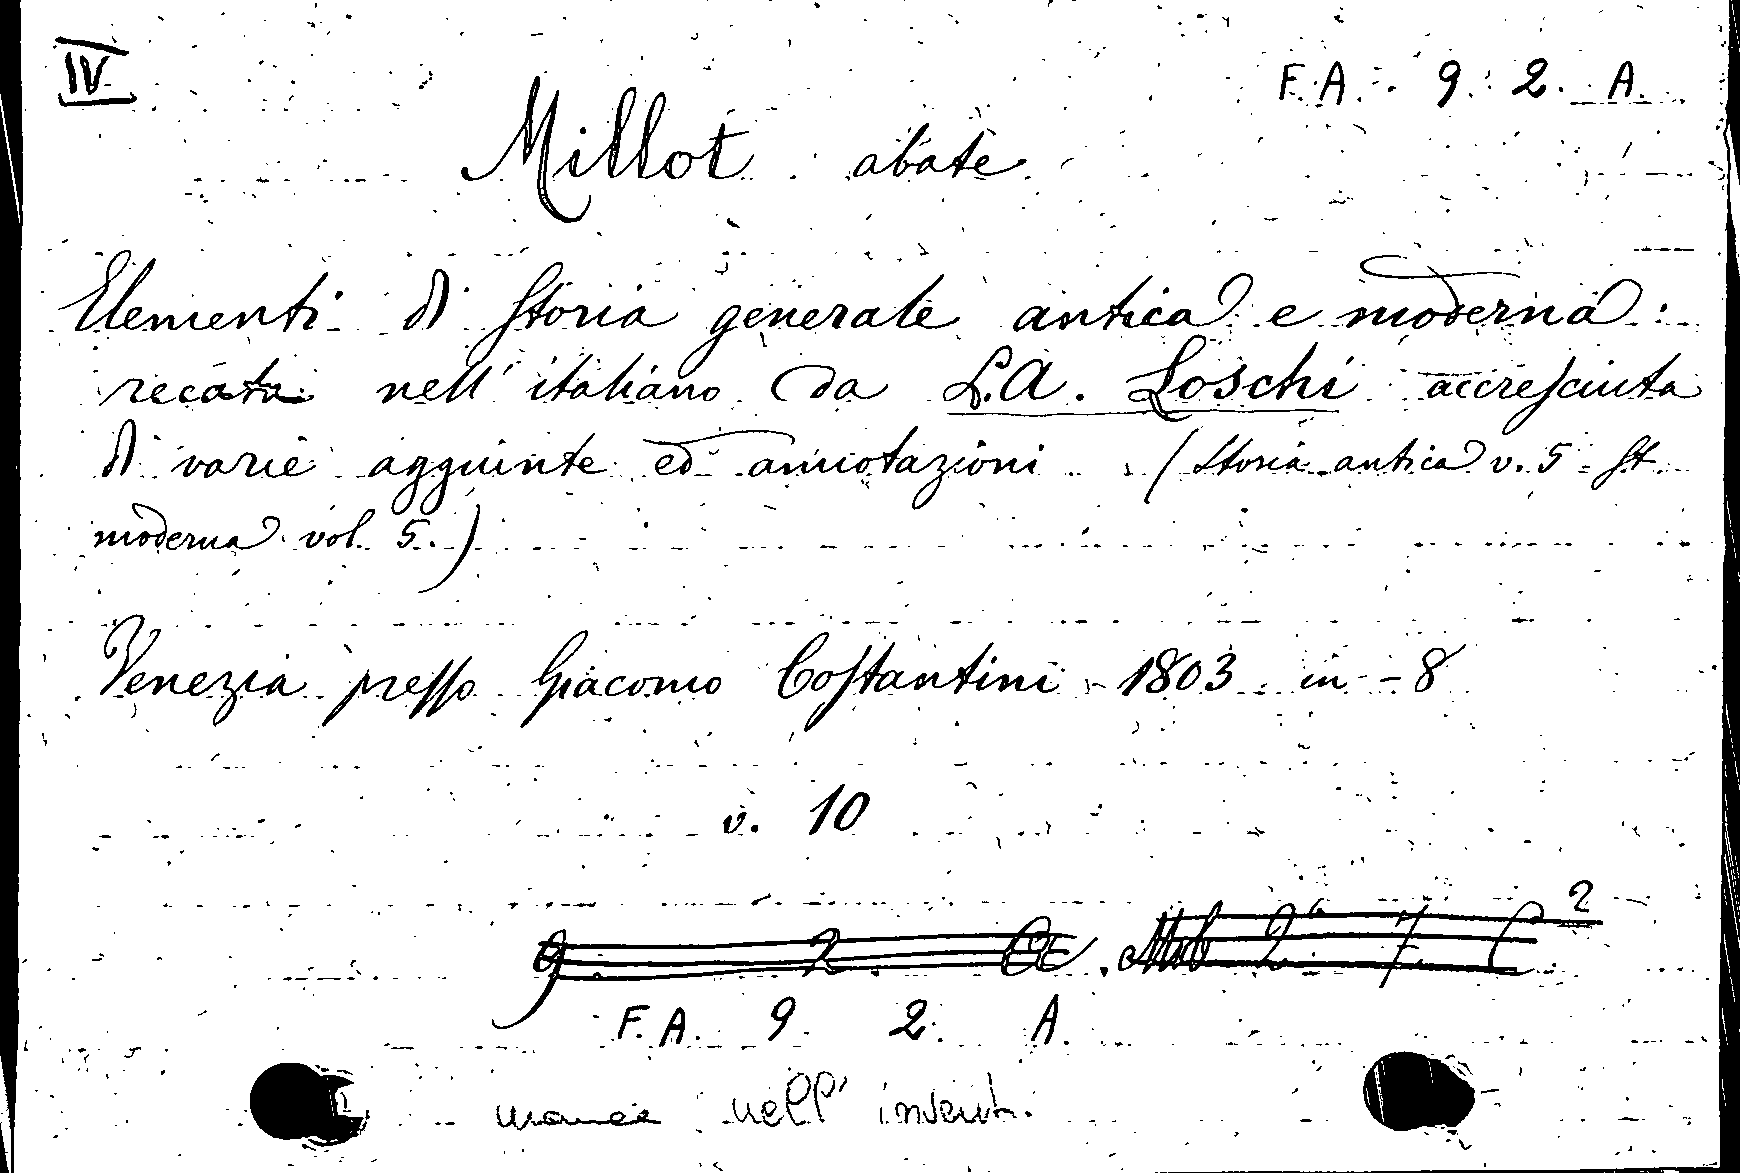 IV
F. A. 9. 2. A.
Millot abate
Elementi di storia generale antica e moderna:
recata nell'italiano da L. A. Loschi accresciuta
di varie aggiunte ed annotazioni (Storia antica v. 5 - St.
moderna vol. 5.)
Venezia presso Giacomo Costantini 1803 in-8
v. 10
9. 2.
2 7 C 2
F. A. 9. 2. A.
manca nell' invent.